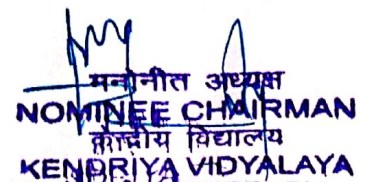 मनोनीत अध्यक्ष
NOMINEE CHAIRMAN
केन्द्रीय विद्यालय
KENDRIYA VIDYALAYA